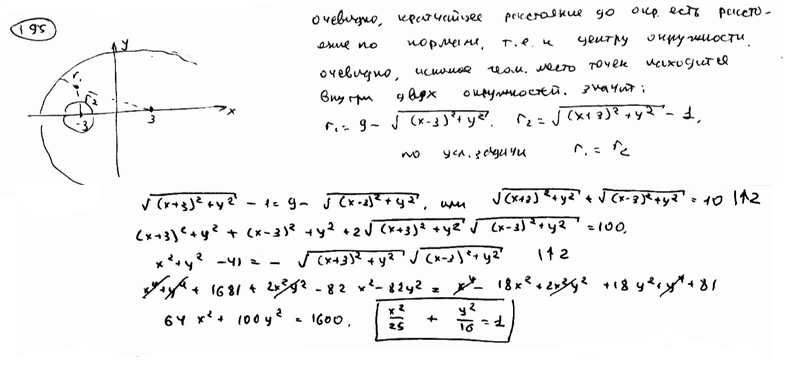 195
очевидно, кратчайшее расстояние до окр. есть рассто-
яние по нормали, т.е. к центру окружности.
очевидно, искомое геом. место точек находится
внутри двух окружностей. значит:
r₁ = 9 - √((x-3)² + y²). r₂ = √((x+3)² + y²) - 1,
по усл. задачи r₁ = r₂
y
r₁
r₂
x
-3
3
√((x+3)² + y²) - 1 = 9 - √((x-3)² + y²), или √((x+3)² + y²) + √((x-3)² + y²) = 10 |↑2
(x+3)² + y² + (x-3)² + y² + 2√((x+3)² + y²) √((x-3)² + y²) = 100,
x² + y² - 41 = - √((x+3)² + y²) √((x-3)² + y²) |↑2
x⁴ + y⁴ + 1681 + 2x²y² - 82x² - 82y² = x⁴ - 18x² + 2x²y² + 18y² + y⁴ + 81
64x² + 100y² = 1600. x²/25 + y²/16 = 1